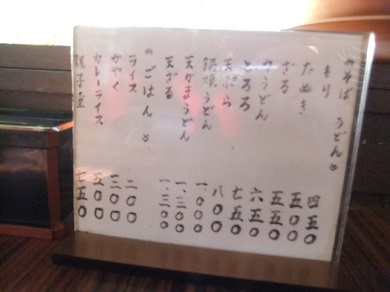 《そば うどん》
もり 四五〇
ざる 五〇〇
たぬき 五五〇
カうどん 六五〇
とろろ 七五〇
天ぷら 八〇〇
鍋焼うどん 一、〇〇〇
天かまうどん 一、〇〇〇
天ざる 一、三〇〇
《ごはん》
ライス 二〇〇
かやく 三〇〇
カレーライス 五〇〇
親子丼 七五〇